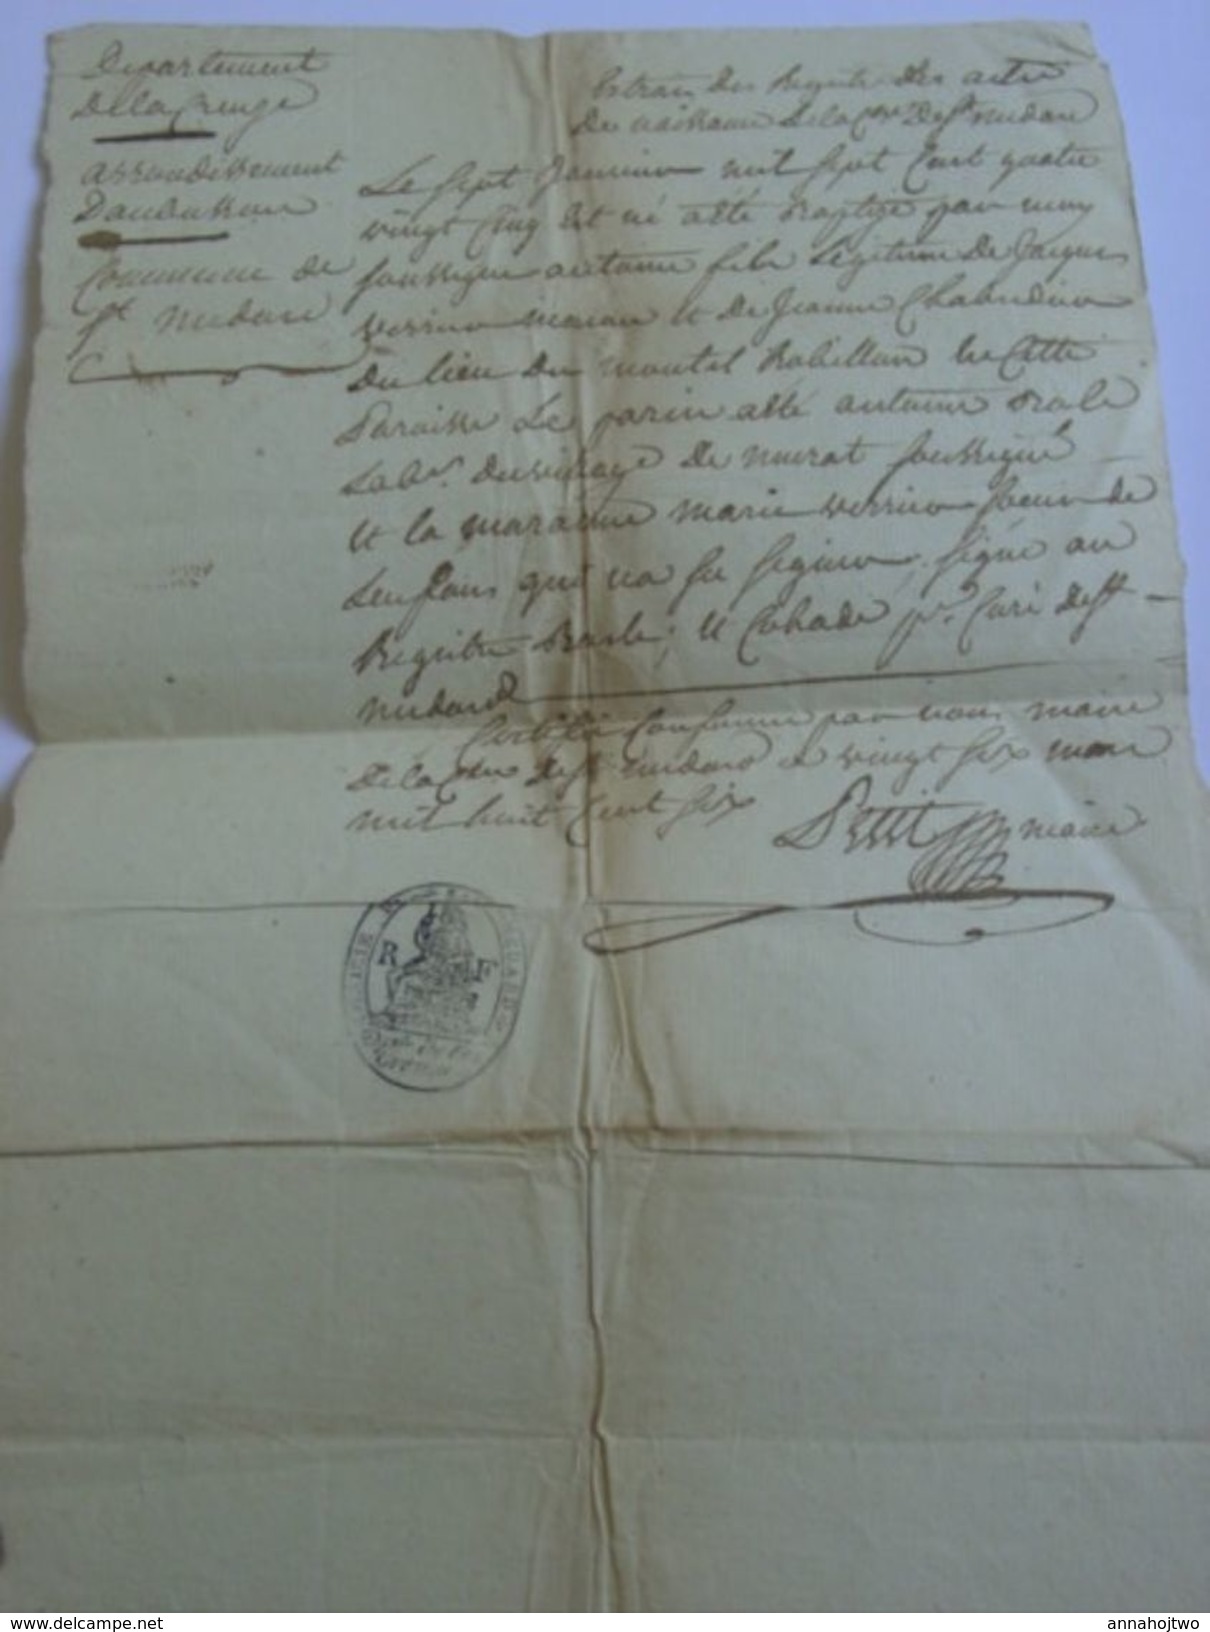 Departement
De la Creuze
arrondissement
Daubusson
Commune de
St medard
Extrait des Registre des acte
De naissance De la Cne De St medard
Le sept Janvier mil sept Cent quatre
vingt Cinq Est né a été Baptizé par moy
soussigné antoine fils Legitime De Jacques
verrier maçon et De Jeanne Chabridier
Du lieu Du montel Rabillon De Cette
Paroisse Le parin a été antoine
Labr. Du village De murat soussigné
et la maraine marie verrier soeur de
Lenfans qui na su signer, signé au
Registre ; et Cohade pr. Curé De St
medard
Certifié Conforme par nous maire
De la Cne De St medard Le vingt six mars
mil huit Cent six Petit maire
R F
annahojtwo
www.delcampe.net